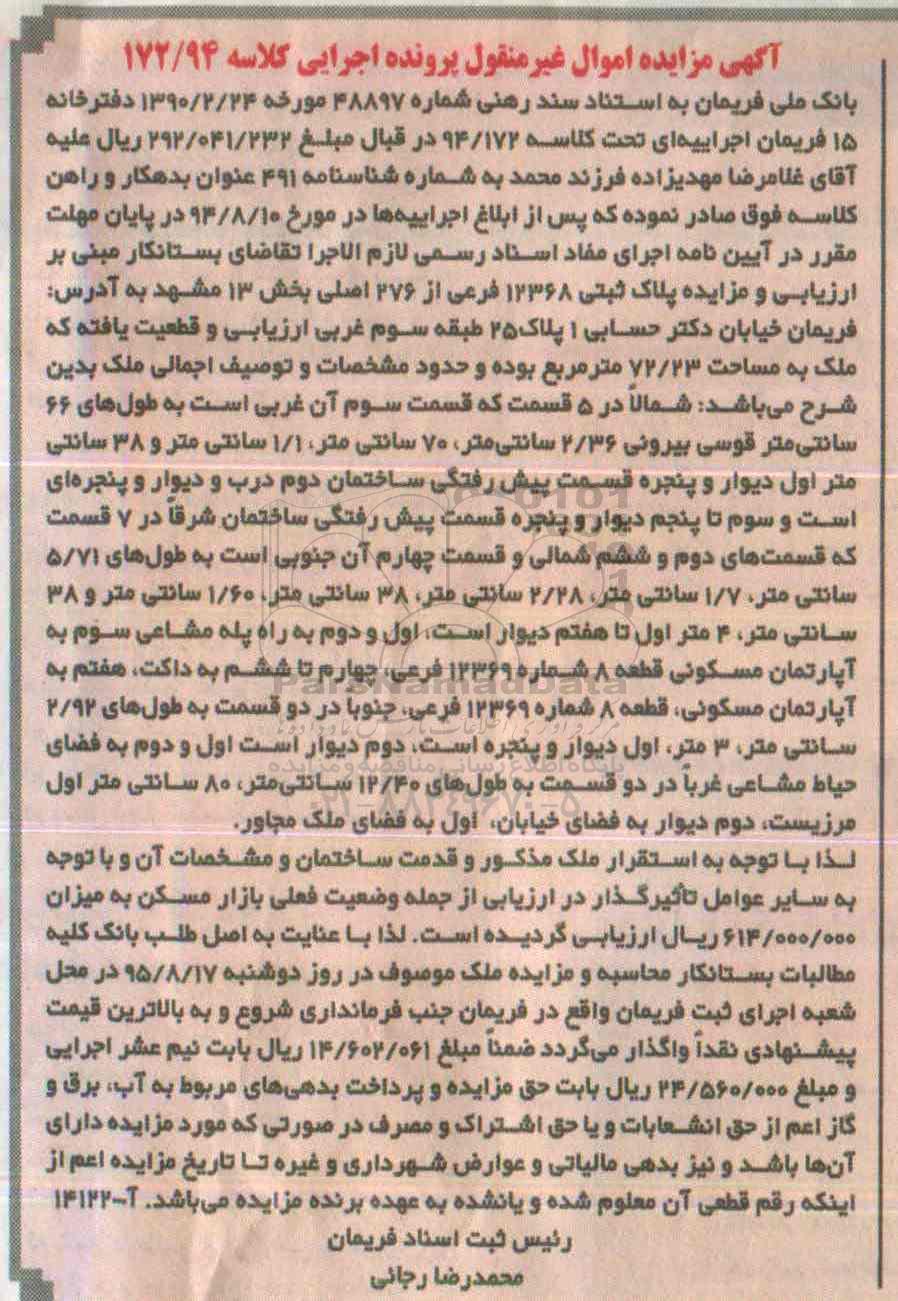 آگهی مزایده اموال غیرمنقول پرونده اجرایی کلاسه ۱۷۲/۹۴
بانک ملی فریمان به استناد سند رهنی شماره ۴۸۸۹۷ مورخه ۱۳۹۰/۲/۲۴ دفترخانه
۱۵ فریمان اجراییه‌ای تحت کلاسه ۹۴/۱۷۲ در قبال مبلغ ۲۹۲/۰۴۱/۲۳۲ ریال علیه
آقای غلامرضا مهدیزاده فرزند محمد به شماره شناسنامه ۴۹۱ عنوان بدهکار و راهن
کلاسه فوق صادر نموده که پس از ابلاغ اجراییه‌ها در مورخ ۹۴/۸/۱۰ در پایان مهلت
مقرر در آیین نامه اجرای مفاد اسناد رسمی لازم الاجرا تقاضای بستانکار مبنی بر
ارزیابی و مزایده پلاک ثبتی ۱۲۳۶۸ فرعی از ۲۷۶ اصلی بخش ۱۳ مشهد به آدرس:
فریمان خیابان دکتر حسابی ۱ پلاک۲۵ طبقه سوم غربی ارزیابی و قطعیت یافته که
ملک به مساحت ۷۲/۲۳ مترمربع بوده و حدود مشخصات و توصیف اجمالی ملک بدین
شرح می‌باشد: شمالاً در ۵ قسمت که قسمت سوم آن غربی است به طول‌های ۶۶
سانتی‌متر قوسی بیرونی ۲/۳۶ سانتی‌متر، ۷۰ سانتی متر، ۱/۱ سانتی متر و ۳۸ سانتی
متر اول دیوار و پنجره قسمت پیش رفتگی ساختمان دوم درب و دیوار و پنجره‌ای
است و سوم تا پنجم دیوار و پنجره قسمت پیش رفتگی ساختمان شرقاً در ۷ قسمت
که قسمت‌های دوم و ششم شمالی و قسمت چهارم آن جنوبی است به طول‌های ۵/۷۱
سانتی متر، ۱/۷ سانتی متر، ۲/۲۸ سانتی متر، ۳۸ سانتی متر، ۱/۶۰ سانتی متر و ۳۸
سانتی متر، ۴ متر اول تا هفتم دیوار است، اول و دوم به راه پله مشاعی سوم به
آپارتمان مسکونی قطعه ۸ شماره ۱۲۳۶۹ فرعی، چهارم تا ششم به داکت، هفتم به
آپارتمان مسکونی، قطعه ۸ شماره ۱۲۳۶۹ فرعی، جنوبا در دو قسمت به طول‌های ۲/۹۲
سانتی متر، ۳ متر، اول دیوار و پنجره است، دوم دیوار است اول و دوم به فضای
حیاط مشاعی غرباً در دو قسمت به طول‌های ۱۲/۴۰ سانتی‌متر، ۸۰ سانتی متر اول
مرزیست، دوم دیوار به فضای خیابان، اول به فضای ملک مجاور.
لذا با توجه به استقرار ملک مذکور و قدمت ساختمان و مشخصات آن و با توجه
به سایر عوامل تأثیرگذار در ارزیابی از جمله وضعیت فعلی بازار مسکن به میزان
۶۱۴/۰۰۰/۰۰۰ ریال ارزیابی گردیده است. لذا با عنایت به اصل طلب بانک کلیه
مطالبات بستانکار محاسبه و مزایده ملک موصوف در روز دوشنبه ۹۵/۸/۱۷ در محل
شعبه اجرای ثبت فریمان واقع در فریمان جنب فرمانداری شروع و به بالاترین قیمت
پیشنهادی نقداً واگذار می‌گردد ضمناً مبلغ ۱۴/۶۰۲/۰۶۱ ریال بابت نیم عشر اجرایی
و مبلغ ۲۴/۵۶۰/۰۰۰ ریال بابت حق مزایده و پرداخت بدهی‌های مربوط به آب، برق و
گاز اعم از حق انشعابات و یا حق اشتراک و مصرف در صورتی که مورد مزایده دارای
آن‌ها باشد و نیز بدهی مالیاتی و عوارض شهرداری و غیره تا تاریخ مزایده اعم از
اینکه رقم قطعی آن معلوم شده و یانشده به عهده برنده مزایده می‌باشد. آ-۱۴۱۲۲
رئیس ثبت اسناد فریمان
محمدرضا رجائی
ParsNamadData
پایگاه اطلاع رسانی مناقصه و مزایده
۰۲۱-۸۸۳۴۹۶۷۰-۵